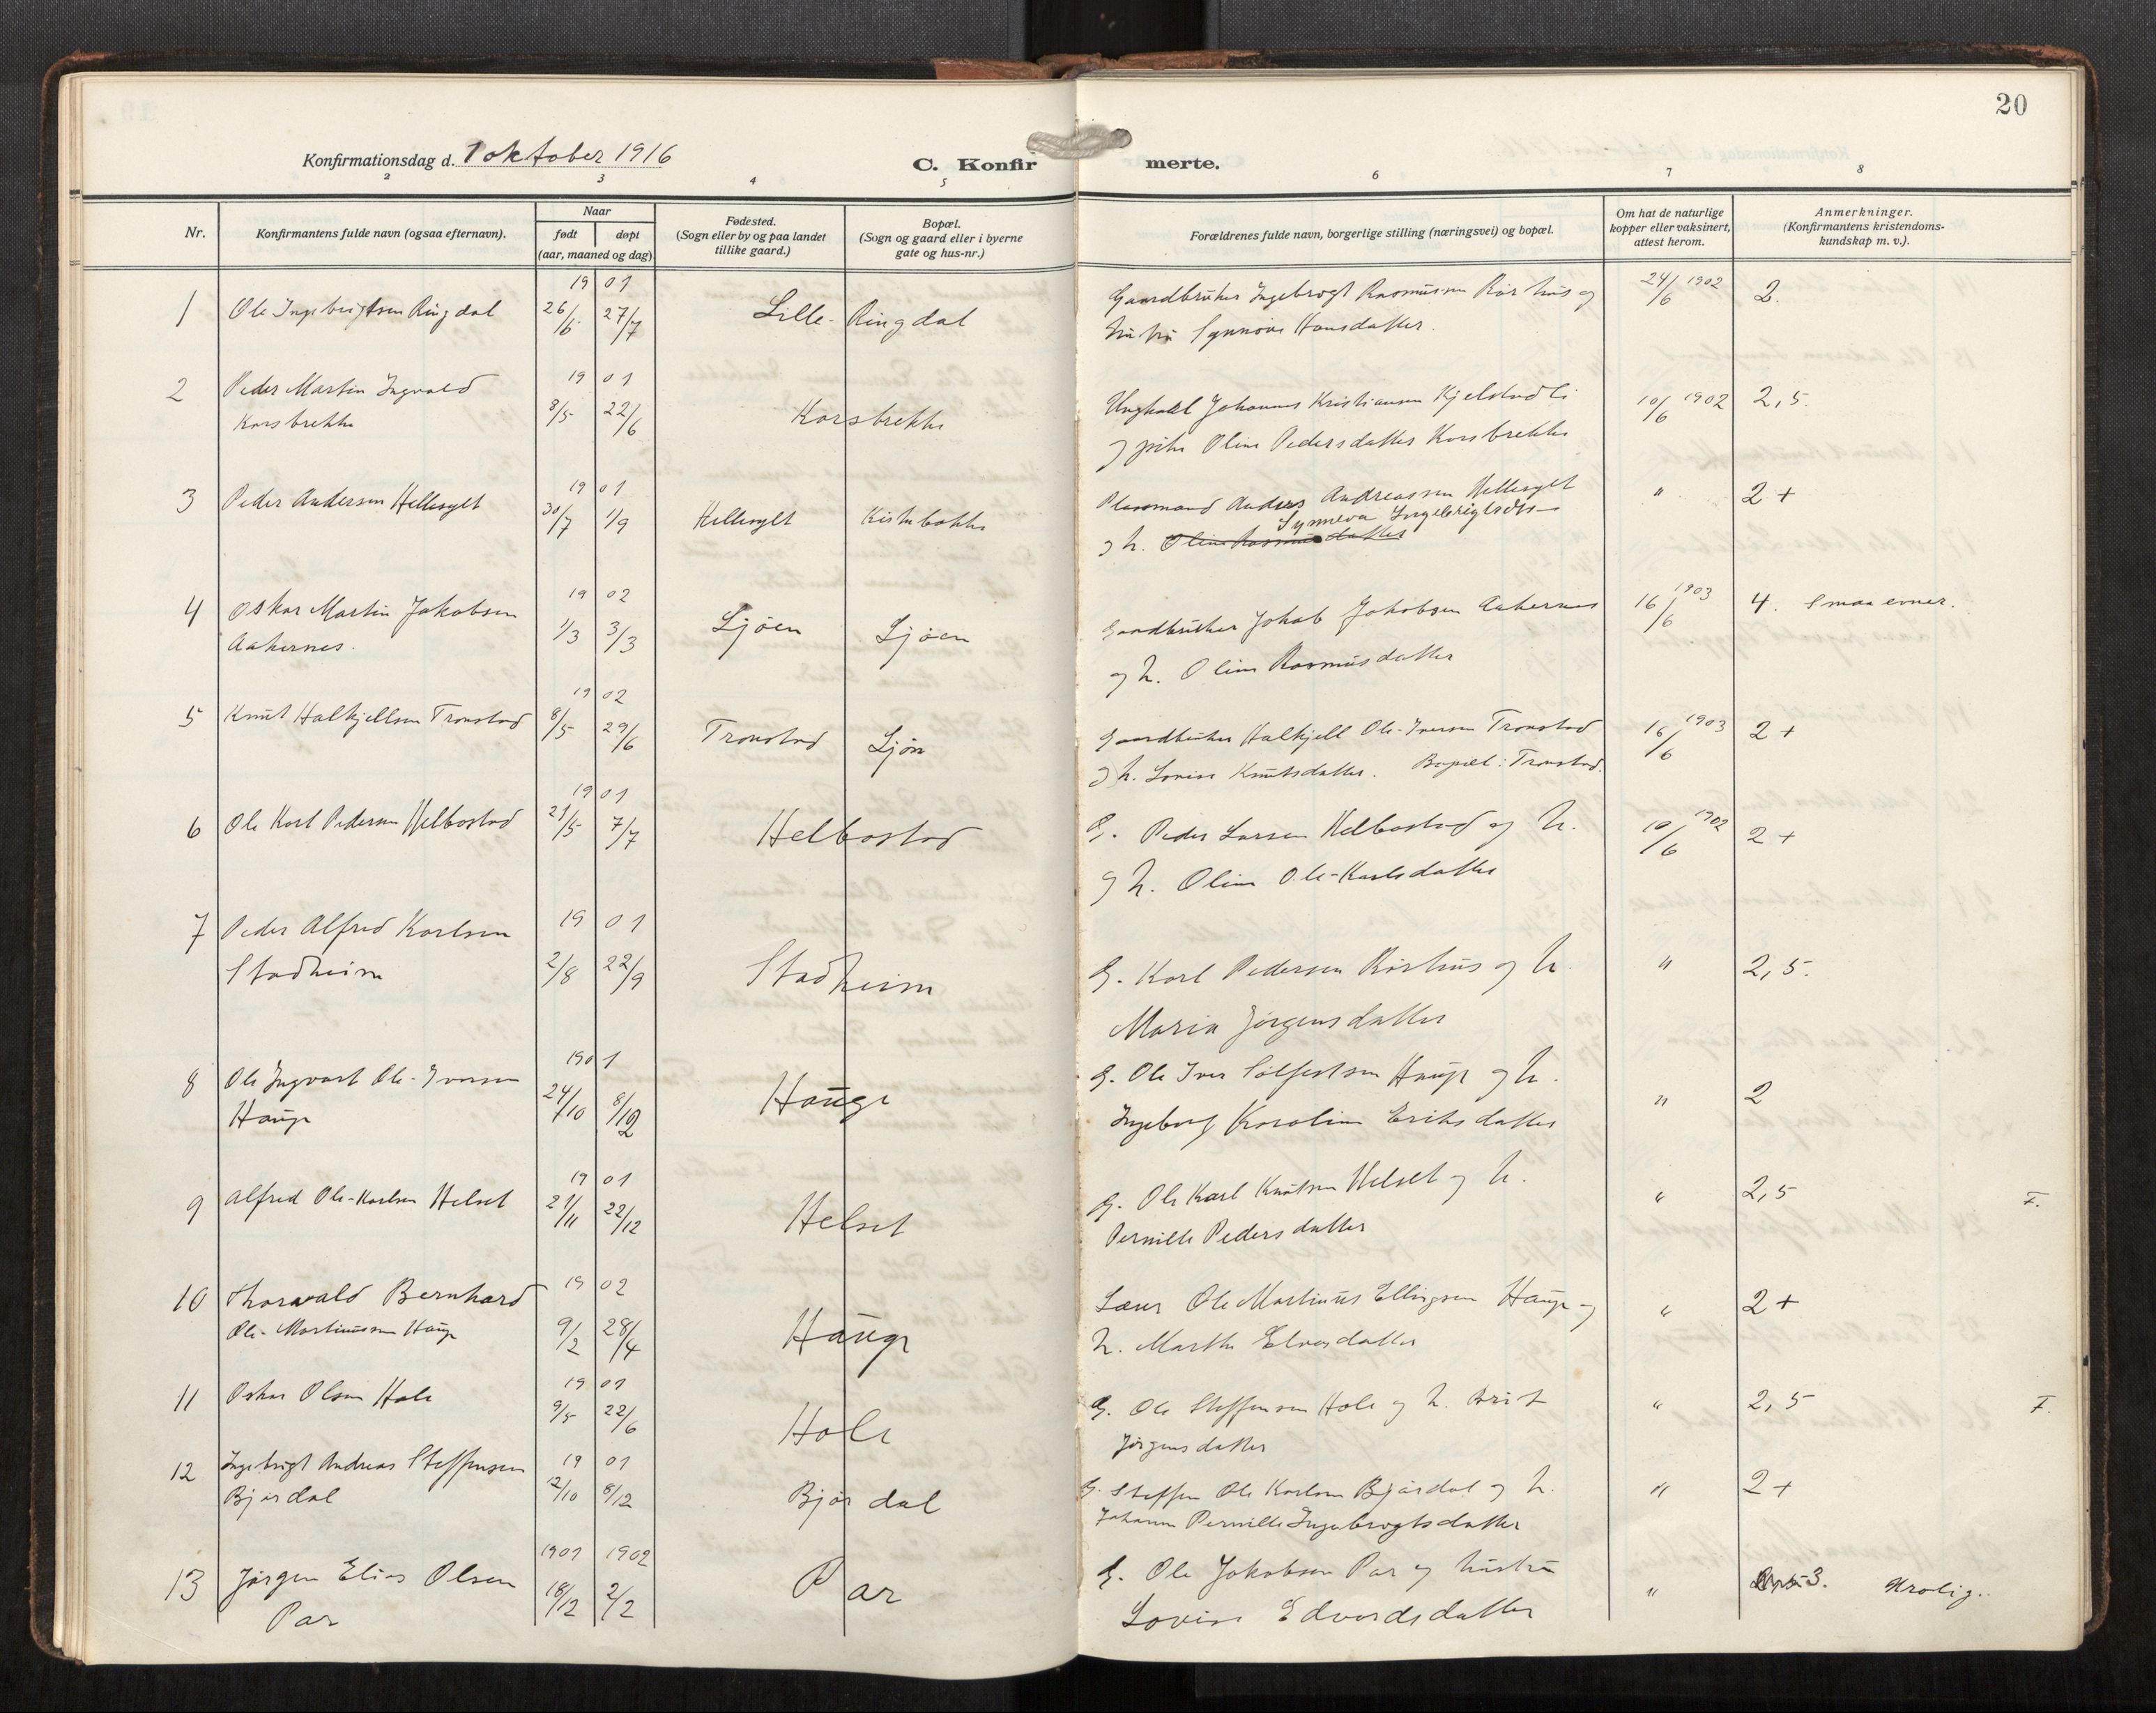 20
Konfirmationsdag d. 1 oktober 1916
C. Konfirmerte.
2 3 4 5 6 7 8
Nr.
Konfirmantens fulde navn (ogsaa efternavn).
Naar
født døpt
(aar, maaned og dag)
Fødested.
(Sogn eller by og paa landet
tillike gaard.)
Bopæl.
(Sogn og gaard eller i byerne
gate og hus-nr.)
Forældrenes fulde navn, borgerlige stilling (næringsvei) og bopæl.
Om hat de naturlige
kopper eller vaksinert,
attest herom.
Anmerkninger.
(Konfirmantens kristendoms-
kundskap m. v.).
1 Ole Ingebrigtsen Ringdal 19 01 26/6 27/7 Lille-Ringdal Gaardbruker Ingebrigt Rasmussen Rørhus og 24/6 1902 2.
hustru Synnøve Hansdatter
2 Peder Martin Ingvald 19 01 8/5 22/6 Korsbrekke Ungkarl Johannes Kristiansen Kjelstadli 10/6 1902 2,5
Korsbrekke
og pike Oline Pedersdatter Korsbrekke
3 Peder Andersen Hellesylt 19 01 30/7 1/9 Hellesylt Plassmand Anders Andreassen Hellesylt " 2 +
Synneva Ingebrigtsdtr
og h. Oline Rasmusdatter
4 Oskar Martin Jakobsen 19 02 1/3 3/3 Ljöen Ljöen Gaardbruker Jakob Jakobsen Aakernes 16/6 1903 4. Smaa evner.
Aakernes.
og h. Oline Rasmusdatter
5 Knut Halkjellsen Tronstad 19 02 8/5 29/6 Tronstad Ljön Gaardbruker Halkjell Ole-Iversen Tronstad 16/6 1903 2 +
og h. Lovise Knutsdatter. Bopæl: Tronstad.
6 Ole Karl Pedersen Helbostad 19 01 21/5 7/7 Helbostad G. Peder Larsen Helbostad og h. 10/6 1902 2 +
og h. Oline Ole-Karlsdatter
7 Peder Alfred Karlsen 19 01 2/8 22/9 Stadheim G. Karl Pedersen Rörhus og h. " 2,5.
Stadheim
Maria Jörgensdatter
8 Ole Ingvart Ole-Iversen 1901 24/10 8/12 Hauge G. Ole Iver Sölfestsen Hauge og h. " 2
Hauge
Ingeborg Karoline Eriksdatter
9 Alfred Ole-Karlsen Helset 19 01 21/11 22/12 Helset G. Ole Karl Knutsen Helset og h. " 2,5 F.
Pernille Pedersdatter
10 Thorvald Bernhard 19 02 9/2 28/4 Hauge Lærer Ole Martinus Ellingsen Hauge og " 2 +
Ole-Martinussen Hauge
h. Marthe Elvasdatter
11 Oskar Olsen Hole 19 01 9/5 22/6 Hole G. Ole Steffensen Hole og h. Brit " 2,5 F.
Jörgensdatter
12 Ingebrigt Andreas Steffensen 19 01 12/10 8/12 Björdal G. Steffen Ole Karlsen Björdal og h. " 2 +
Björdal
Johanne Pernille Ingebrigtsdatter
13 Jörgen Elias Olsen 1901 1902 18/12 2/2 Par G. Ole Jakobsen Par og hustru " 3. Urolig.
Par
Lovise Edvardsdatter